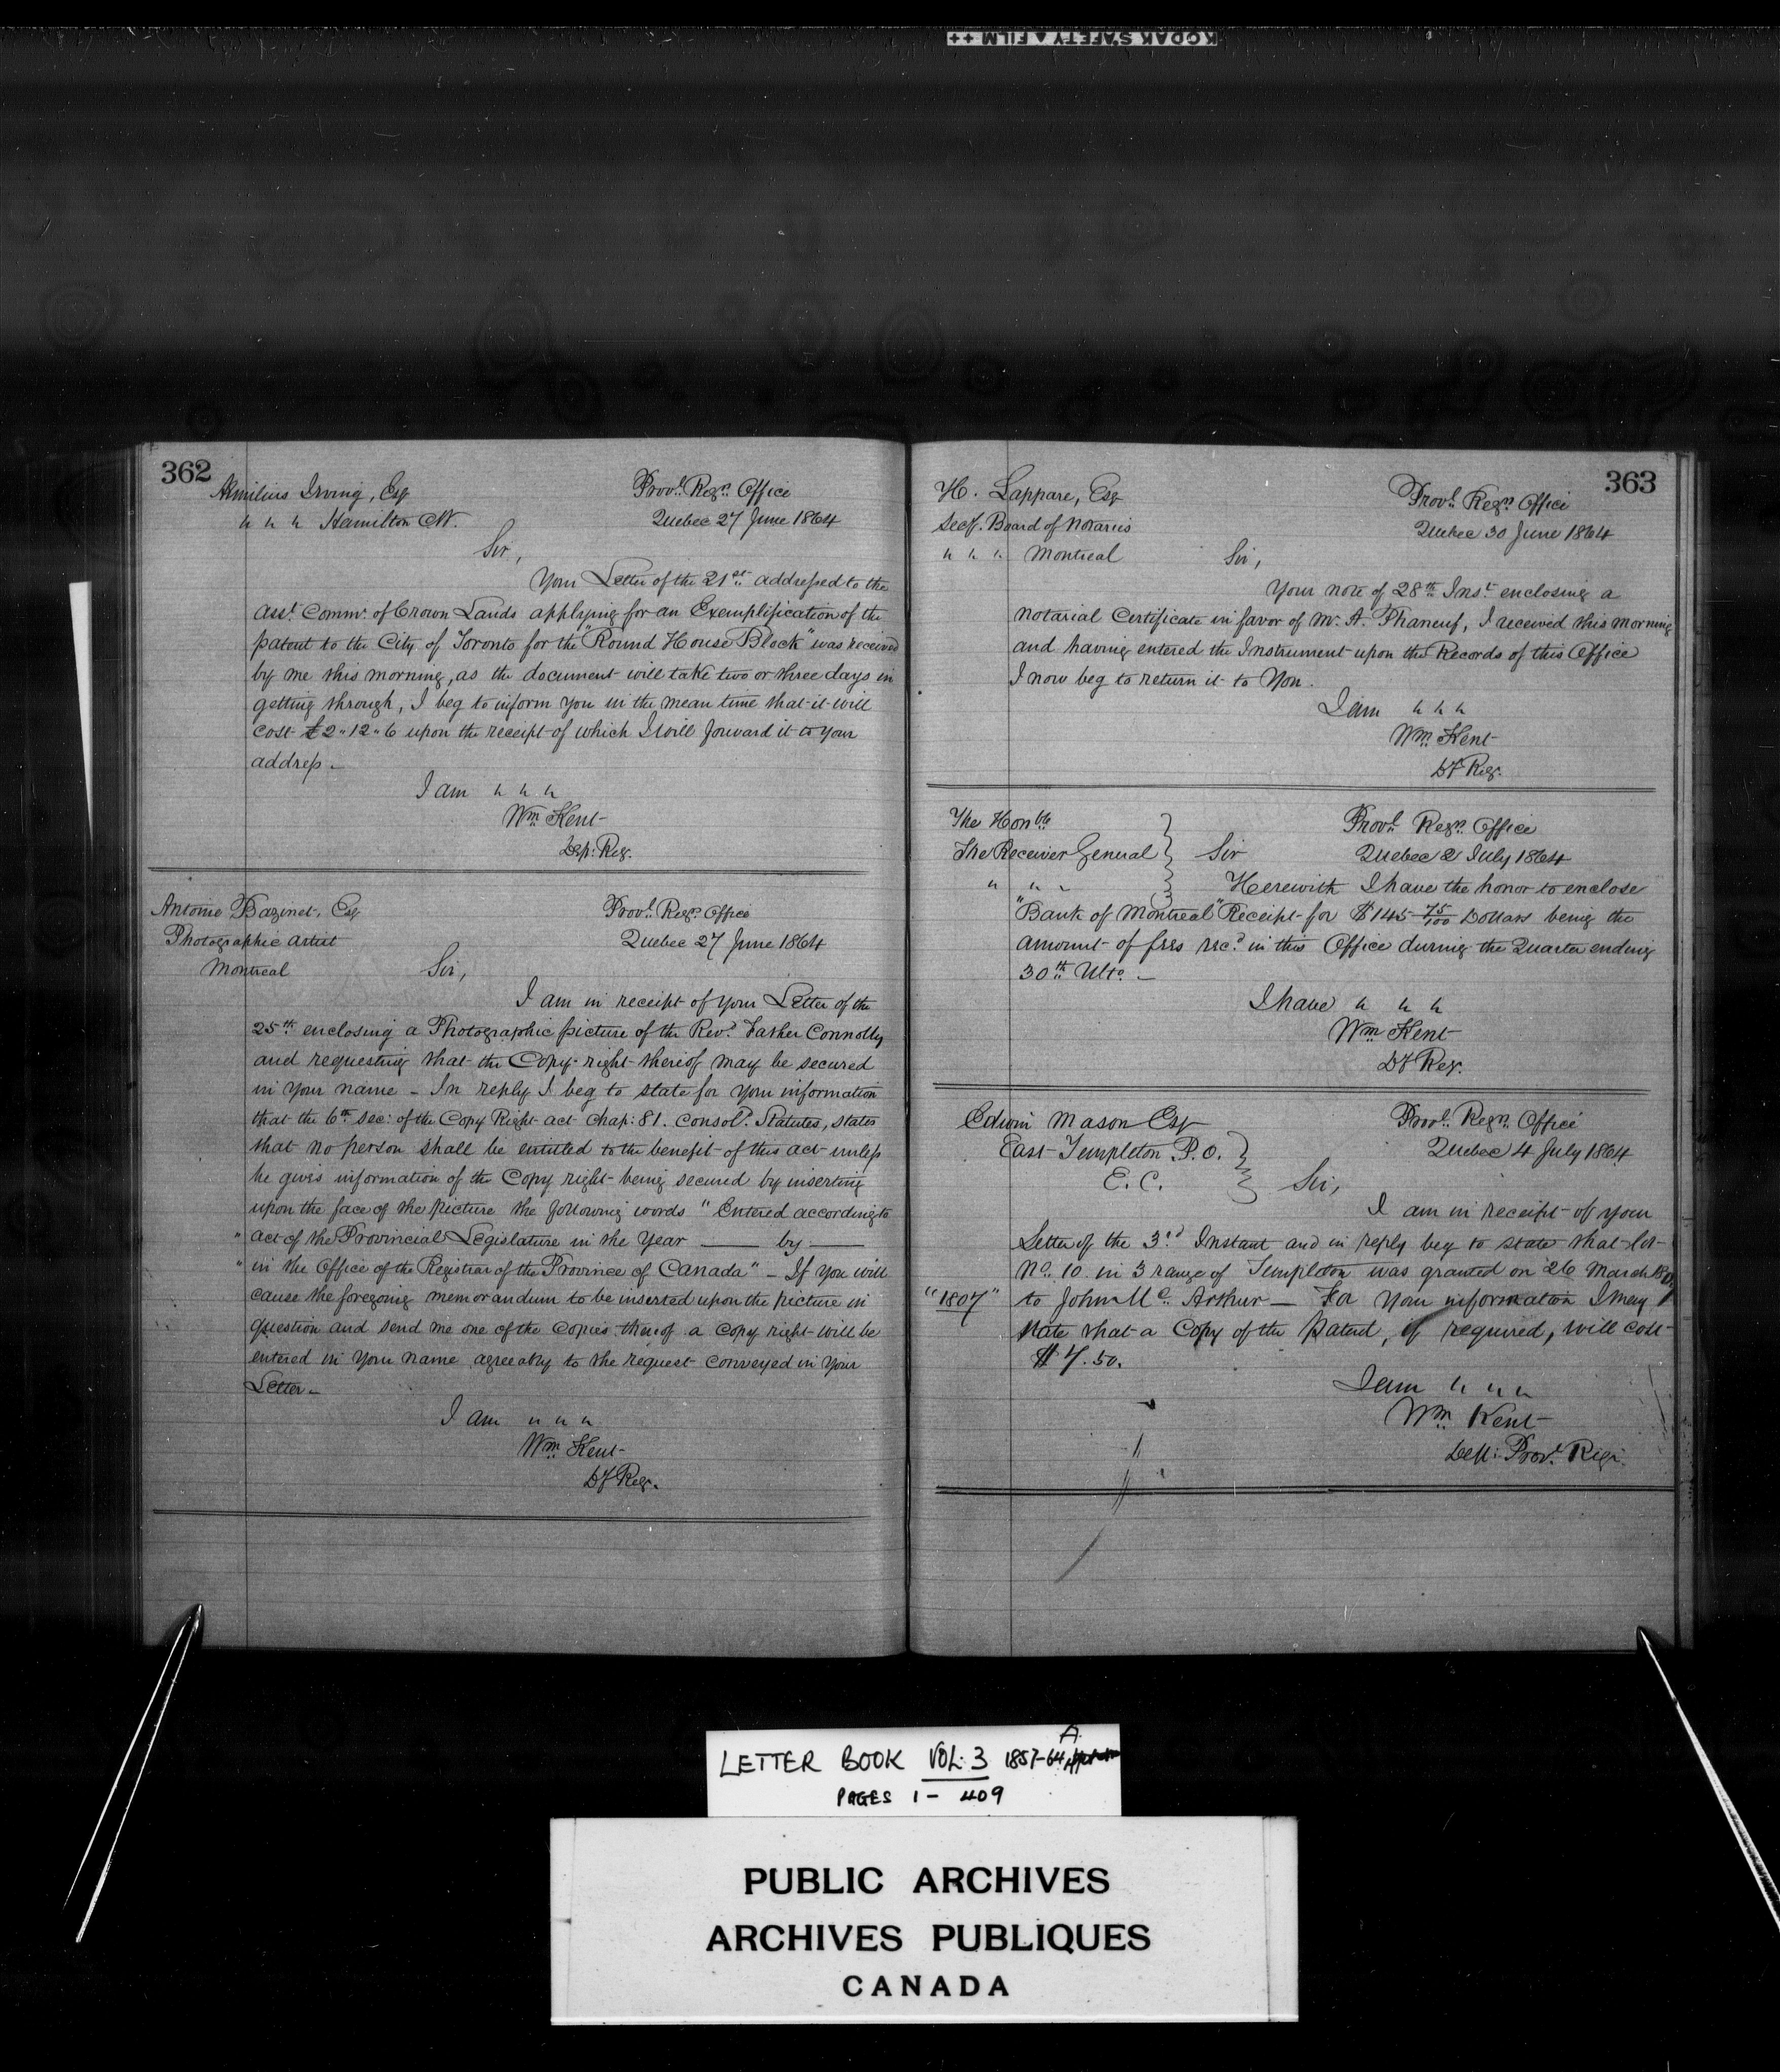 KODAK SAFETY ▲ FILM ++
362
Æmilius Irving, Esq
" " " Hamilton CW.
Provl. Regr. Office
Quebec 27 June 1864
Sir,
Your Letter of the 21st addressed to the
Asst. Commr. of Crown Lands applying for an Exemplification of the
patent to the City of Toronto for the "Round House Block" was received
by me this morning, as the document will take two or three days in
getting through, I beg to inform you in the mean time that it will
cost £2"12"6 upon the receipt of which I will forward it to your
address -
I am " " "
Wm. Kent
Dep: Reg.
Antoine Bazinet, Esq
Photographic Artist
Montreal
Provl. Regr. Office
Quebec 27 June 1864
Sir,
I am in receipt of your Letter of the
25th enclosing a Photographic picture of the Revd. Father Connolly
and requesting that the Copy-right thereof may be secured
in your name - In reply I beg to state for your information
that the 6th sec: of the Copy Right act chap: 81. Consold. Statutes, states
that no person shall be entitled to the benefit of this act unless
he gives information of the Copy right being secured by inserting
upon the face of the picture the following words "Entered according to
" act of the Provincial Legislature in the Year ___ by ___
" in the Office of the Registrar of the Province of Canada" - If you will
cause the foregoing memorandum to be inserted upon the picture in
question and send me one of the Copies thereof a Copy right will be
entered in your name agreeably to the request conveyed in your
Letter -
I am " " "
Wm. Kent
Dy Reg.
363
H. Lappare, Esq
Secy. Board of Notaries
" " " Montreal
Provl. Regr. Office
Quebec 30 June 1864
Sir,
Your note of 28th Inst. enclosing a
Notarial Certificate in favor of Mr. A. Phaneuf, I received this morning
and having entered the Instrument upon the Records of this Office
I now beg to return it to You.
I am " " "
Wm. Kent
Dy Reg.
The Honble
The Receiver General
" " "
Provl Regr. Office
Quebec 2 July 1864
Sir
Herewith I have the honor to enclose
"Bank of Montreal" Receipt for $145 75/100 Dollars being the
amount of fees recd. in this Office during the Quarter ending
30th Ulto. -
I have " " "
Wm Kent
Dy Reg.
Edwin Mason Esq
East Templeton P.O.
E. C.
Provl. Regr. Office
Quebec 4 July 1864
Sir,
I am in receipt of your
Letter of the 3rd Instant and in reply beg to state that lot
No. 10 in 3 range of Templeton was granted on 26 March 1807
"1807" to John Mc. Arthur - For your information I may
state that a Copy of the Patent, if required, will cost
$7.50.
I am " " "
Wm. Kent
Dep: Provl. Regr.
LETTER BOOK VOL. 3 1857-64 A
PAGES 1 - 409
PUBLIC ARCHIVES
ARCHIVES PUBLIQUES
CANADA